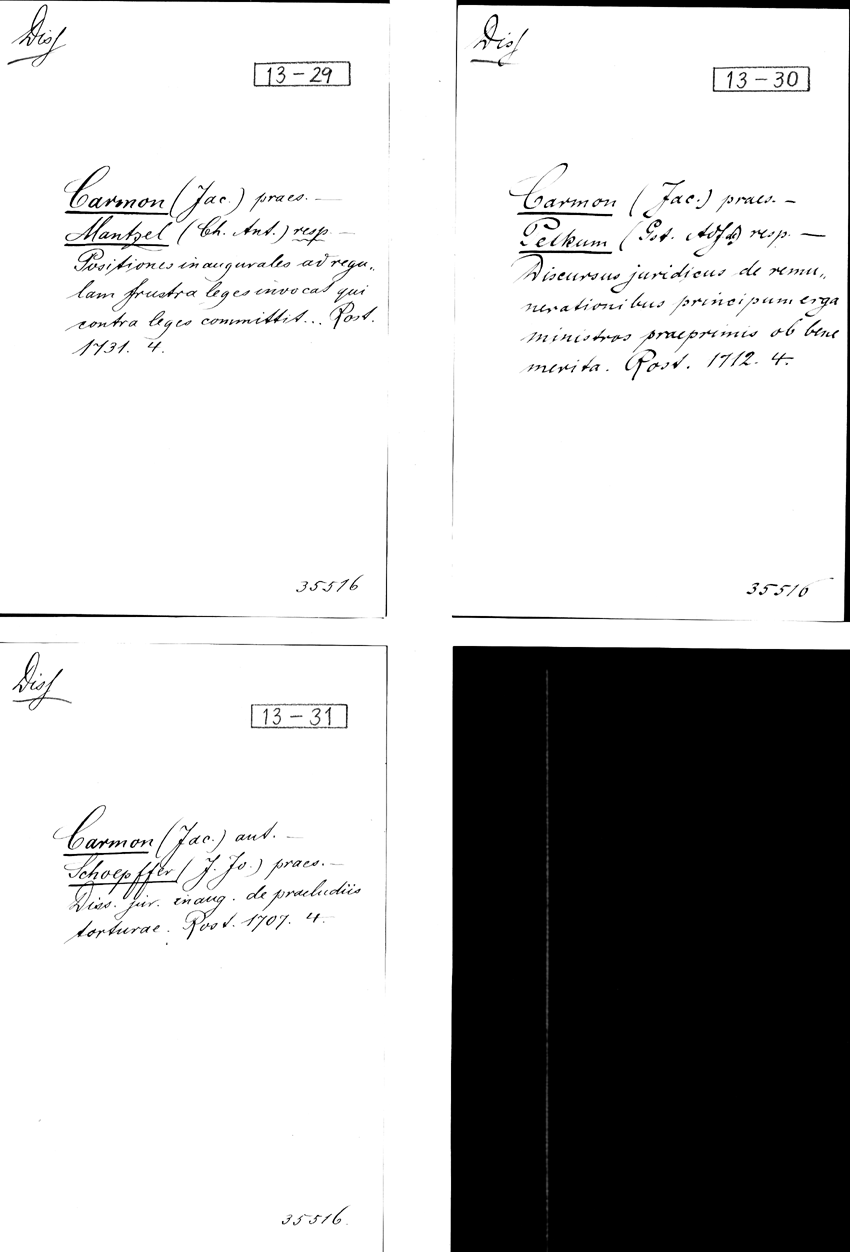 Diss
13-29
Carmon (Jac.) praes. —
Mantzel (Ch. Ant.) resp —
Positiones inaugurales ad regu„
lam frustra leges invocat qui
contra leges committit... Rost.
1731. 4.
35516
Diss
13-30
Carmon (Jac.) praes. —
Pelkum (Gst. ) resp. —
Discursus juridicus de remu„
nerationibus principum erga
ministros praeprimis ob bene
merita. Rost. 1712. 4.
35516
Diss
13-31
Carmon (Jac.) aut. —
Schoepffer (J. Jo.) praes. —
Diss. jur. inaug. de praeludiis
torturae. Rost. 1707. 4.
35516.